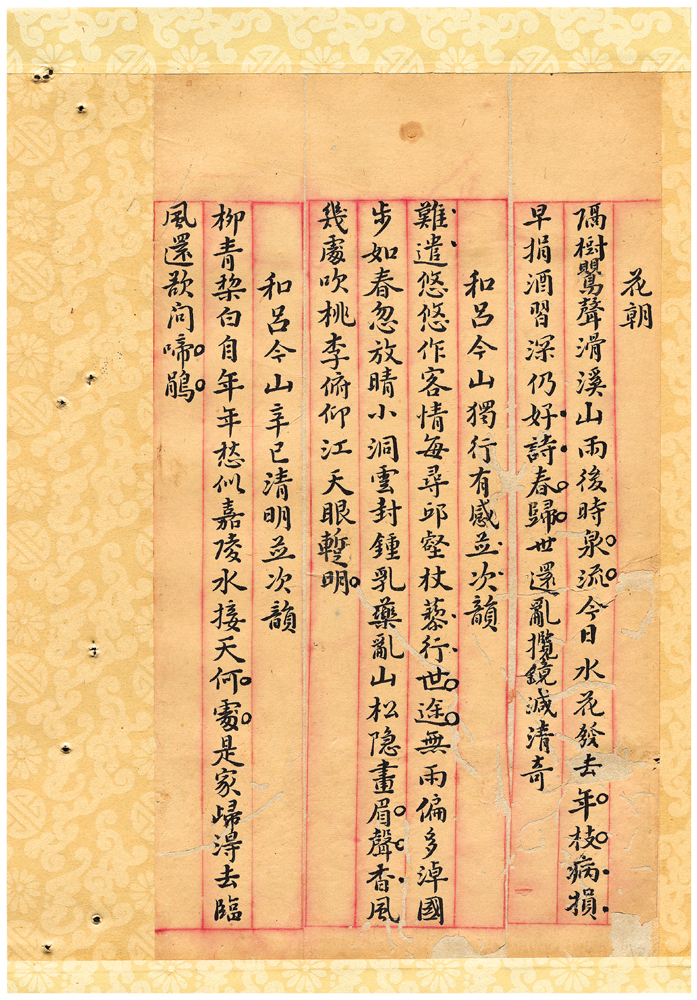 花朝
隔樹鶯聲滑溪山雨後時泉流今日水花發去年枝病損
早捐酒習深仍好詩春歸世還亂攬鏡減清奇
和呂今山獨行有感並次韻
難遣悠悠作客情每尋邱壑杖藜行世途無雨偏多淖國
步如春忽放晴小洞雲封鍾乳藥亂山松隱畫眉聲香風
幾處吹桃李俯仰江天眼暫明
和呂今山辛巳清明並次韻
柳青棃白自年年愁似嘉陵水接天何處是家歸得去臨
風還欲問啼鵑